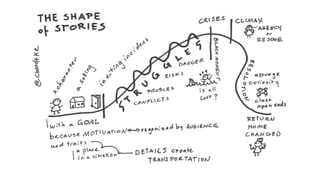 THE SHAPE
of STORIES
CRISES
CLIMAX
AGENCY
or
RESCUE
a character
a setting
inciting incident
STRUGGLE
CONFLICTS
PROBLEMS
RISKS
DANGER
BLACK MOMENT
is all
lost?
RESOLUTION
assuage
curiosity
close
open ends
RETURN
HOME
CHANGED
with a GOAL
because MOTIVATION recognized by AUDIENCE
and traits
a place
in a situation
DETAILS create
TRANSPORTATION